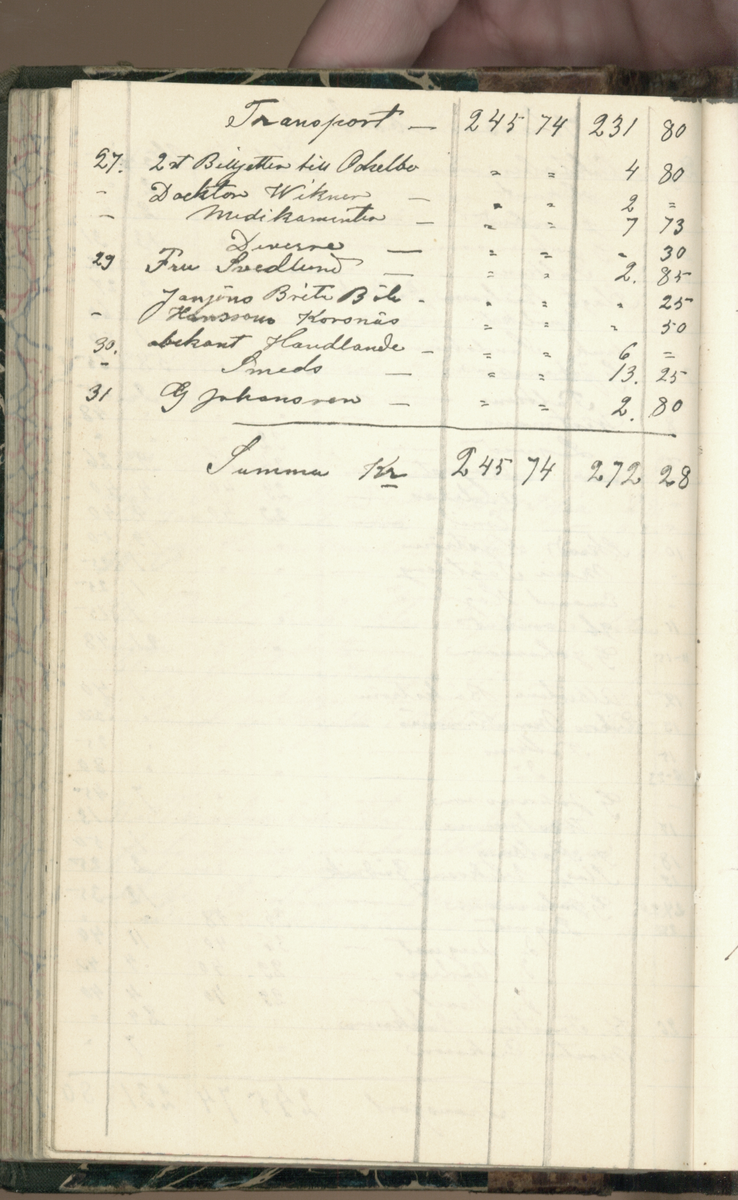 Transport — 245 74 231 80
27. 2st Billjetter till Ockelbo " " 4 80
- Docktor Wikner — " " 2 =
- Medikamenter — " " 7 73
Diverse — " " " 30
29 Fru Svedlund — " " 2. 85
Brita - " " " 25
- Hansson Korsnäs " " " 50
30. obekant Handlande - " " 6 =
- Smeds — " " 13. 25
31 G Johansson — " " 2. 80
Summa Kr 245 74 272 28